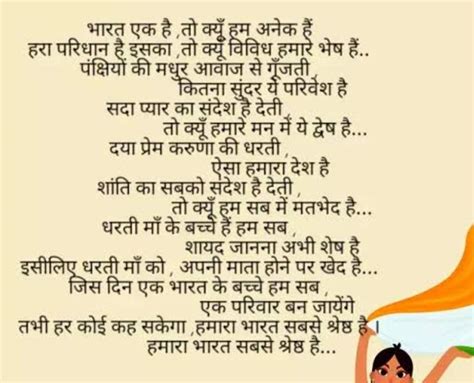 भारत एक है ,तो क्यूँ हम अनेक हैं
हरा परिधान है इसका ,तो क्यूँ विविध हमारे भेष हैं..
पंक्षियों की मधुर आवाज से गूँजती ,
कितना सुंदर ये परिवेश है
सदा प्यार का संदेश है देती ,
तो क्यूँ हमारे मन में ये द्वेष है...
दया प्रेम करुणा की धरती ,
ऐसा हमारा देश है
शांति का सबको संदेश है देती ,
तो क्यूँ हम सब में मतभेद है...
धरती माँ के बच्चे हैं हम सब ,
शायद जानना अभी शेष है
इसीलिए धरती माँ को , अपनी माता होने पर खेद है...
जिस दिन एक भारत के बच्चे हम सब ,
एक परिवार बन जायेंगे
तभी हर कोई कह सकेगा ,हमारा भारत सबसे श्रेष्ठ है ।
हमारा भारत सबसे श्रेष्ठ है...